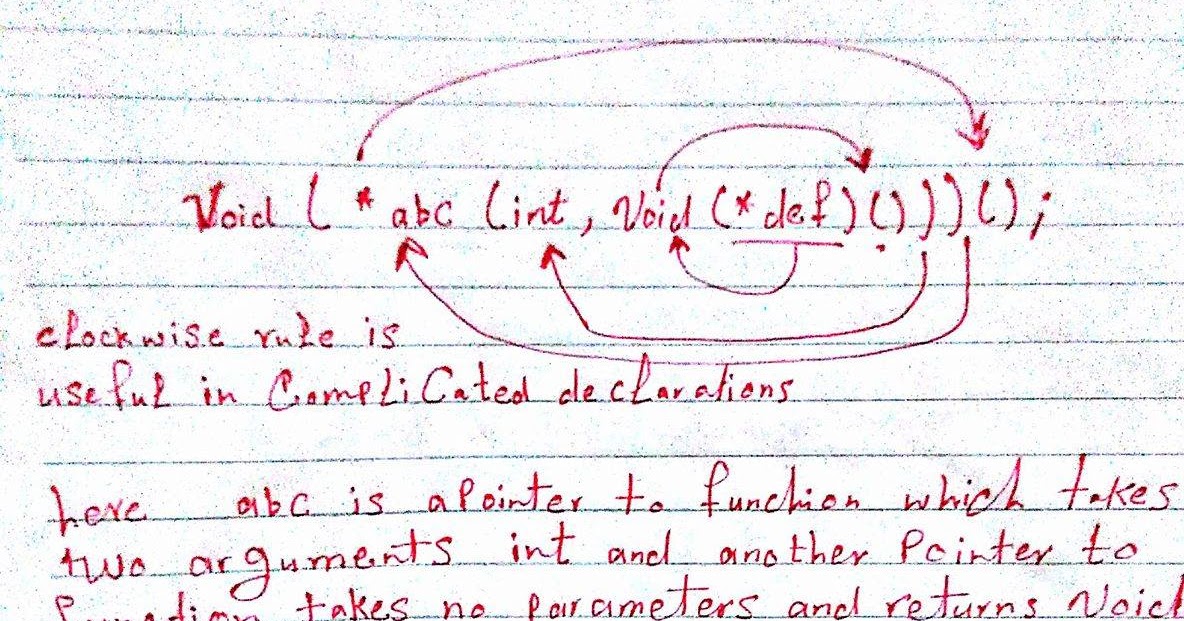 Void ( * abc (int , Void (* def) () ) ) () ;
clockwise rule is
useful in CompliCated declarations
here abc is a Pointer to function which takes
two arguments int and another Pointer to
function takes no parameters and returns Void